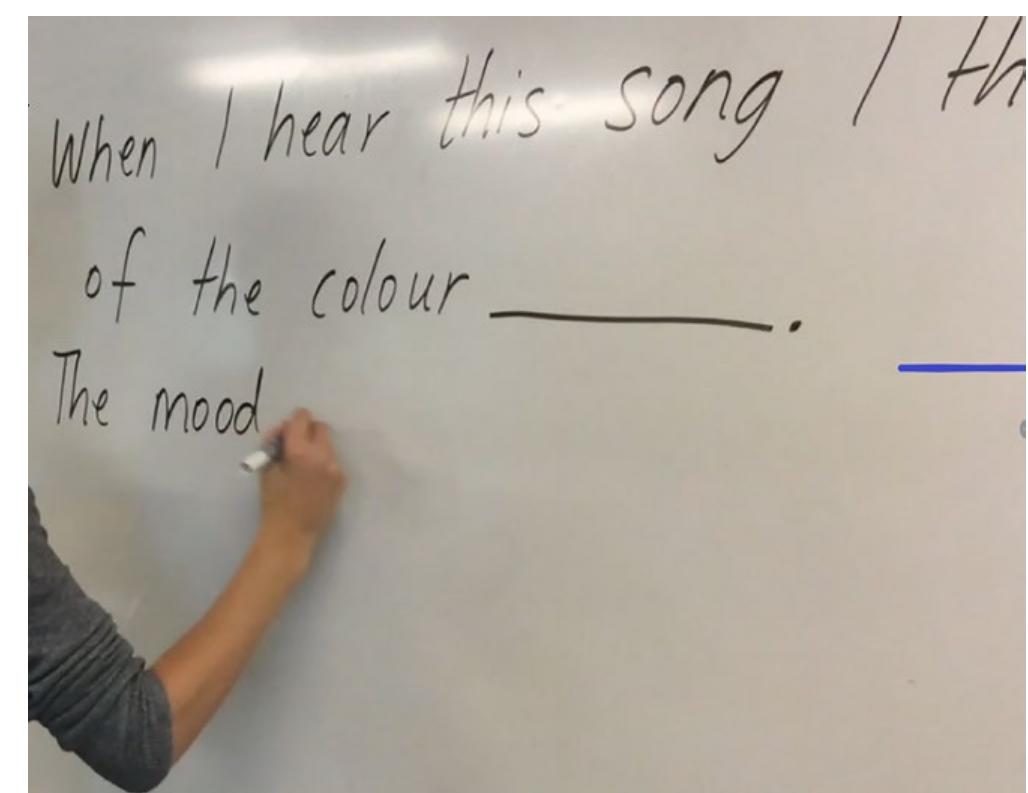 When I hear this song I th
of the colour ________.
The mood